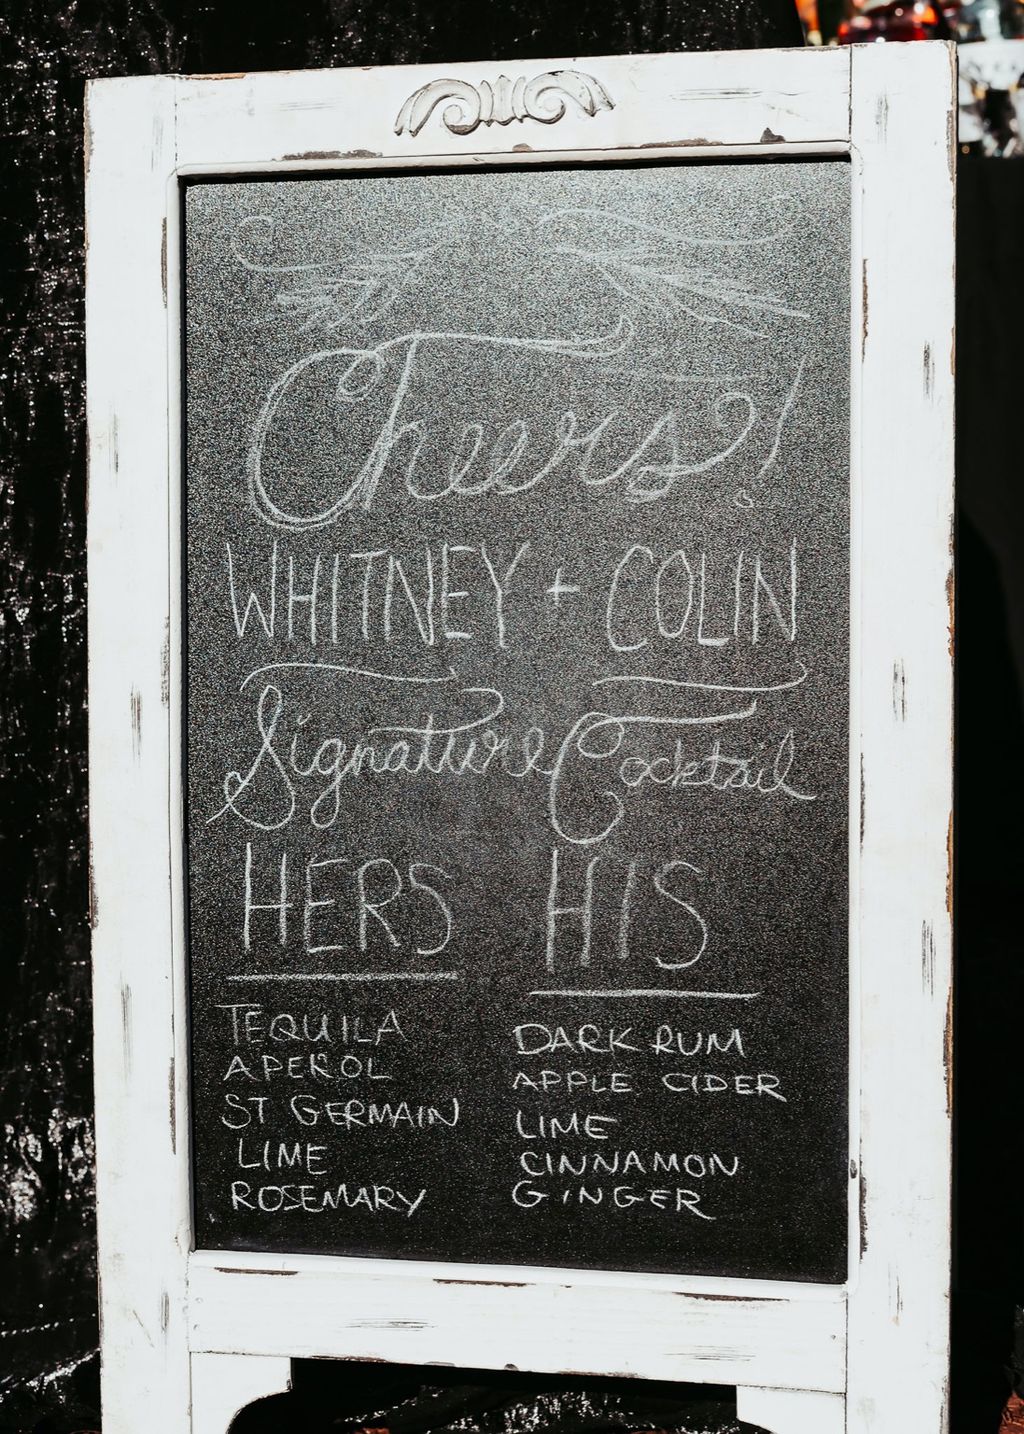 Cheers!
WHITNEY + COLIN
Signature Cocktail
HERS
TEQUILA
APEROL
ST GERMAIN
LIME
ROSEMARY
HIS
DARK RUM
APPLE CIDER
LIME
CINNAMON
GINGER